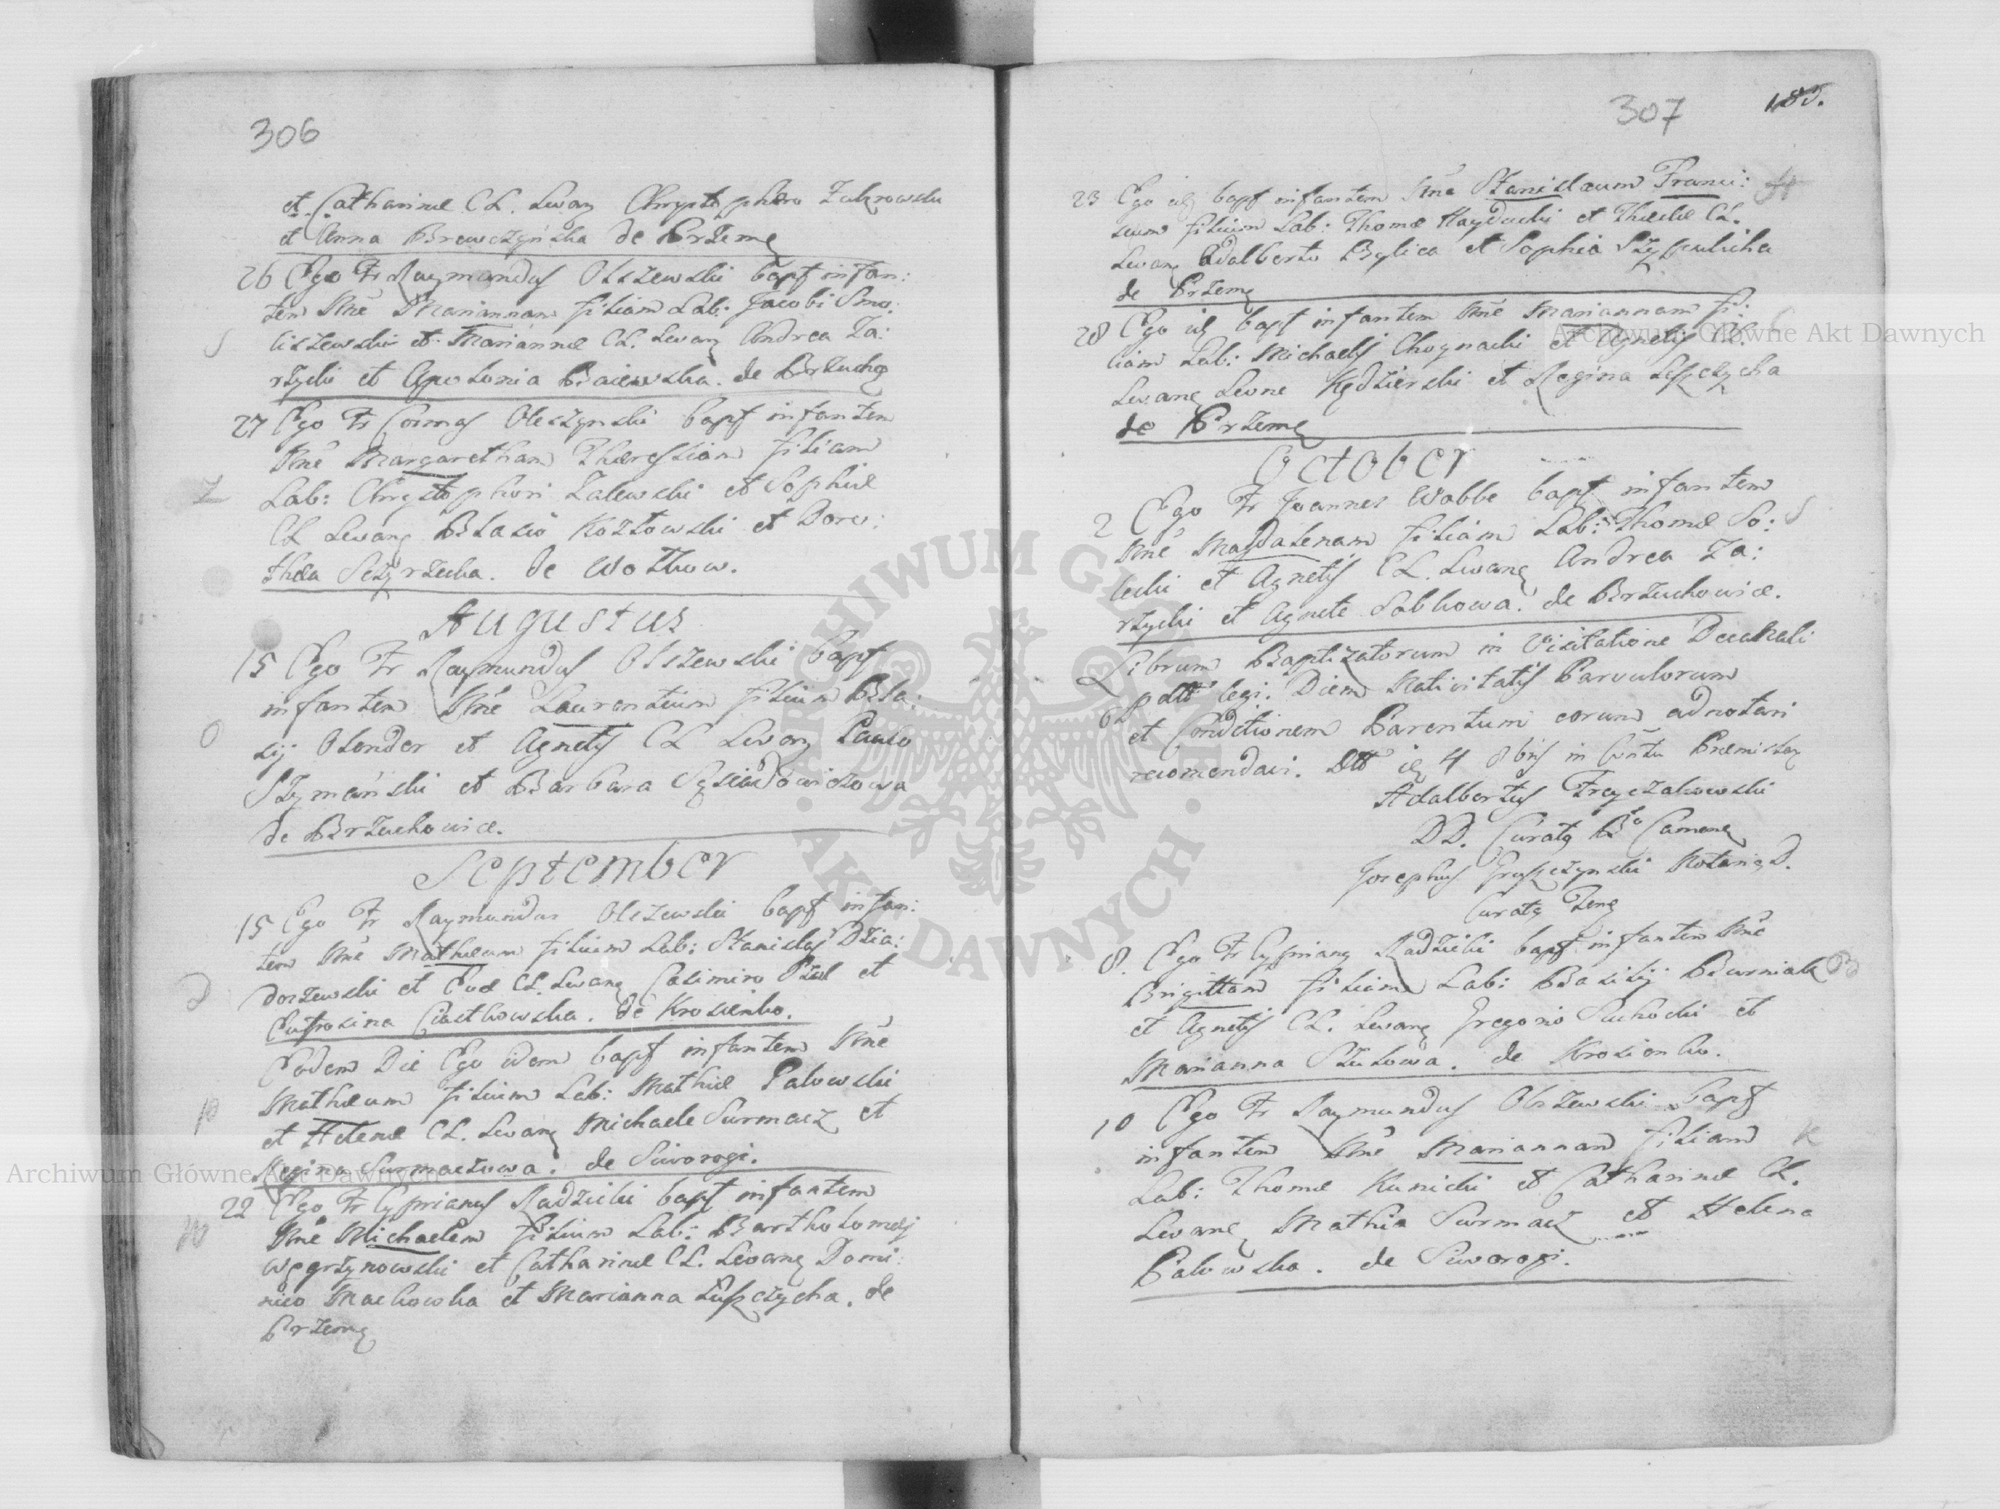 306
et Catharinæ CL. Levan Chrystophoro Zakrowski
et Anna Brewczyńska de Przeme
26 Ego Fr Raymundus Olszewski bapt infan:
tem Nne Mariannam filiam Lab: Jacobi Smo:
S
liszewski et Mariannæ CL. Levan Andrea Za:
rzycki et Apolonia Baiewska. de Brzucho
27 Ego Fr Cosmas Oleszynski bapt infantem
Nne Margaretham Theressiam filiam
Z
Lab: Chrystophori Zalewski et Sophiæ
CL Levan Blasio Kozłowski et Doro:
thea de Wołkow.
Augustus
15 Ego Fr Raymundus Olszewski bapt
infantem Nne Laurentium filium Bla:
O
sij Olender et Agnetis CL Levan Paulo
Szymański et Barbara
de Brzuchowice.
September
15 Ego Fr Raymundus Olszewski bapt infan:
tem Nne Mathæum filium Lab: Stanislai Dzia:
D
doszewski et Evæ CL. Levan Casimiro et
Eufrosina Ciastkowska. de Krosienko.
Eodem Die Ego idem bapt infantem Nne
Mathæum filium Lab: Mathiæ Palowski
P
et Helenæ CL. Levan Michaele Surmacz et
Regina Surmaczowa. de Siworogi.
22 Ego Fr Cyprianus Radzicki bapt infantem
W
Nne Michaelem filium Lab: Bartholomei
Węgrzynowski et Catharinæ CL. Levan Domi:
nico Mackowka et Marianna Łupczycha. de
Przeme
307
185.
23 Ego id bapt infantem Nne Stanislaum Franci: H
scum filium Lab: Thomæ Hayducki et Theclæ CL.
Levan Adalberto Bylica et Sophia Szypulicha
de Przeme
28 Ego id bapt infantem Nne Mariannam fi:
liam Lab: Michaelis Choynacki et Agnetis CL.
Levane Leone Kędzierski et Regina Łupczycha
de Przeme
October
2 Ego Fr Joannes Wabbe bapt infantem
Nne Magdalenam filiam Lab: Thomæ So: S
lecki et Agnetis CL. Levane Andrea Za:
rzycki et Agnete Sabkowa. de Brzuchowice.
Librum Baptizatorum in Visitatione Decanali
legi. Diem Nativitatis Parvulorum
et Conditionem Parentum eorum adnotari
recomendavi. Dtt ie 4 8bris in
Adalbertus Tryczakowski
DD. Curatg Camene
Josephus Gruszczynski Notarig D.
Curatg
8. Ego Fr Cypriang Radzicki bapt infantem Nne
Brigittam filiam Lab: Basilij Burniak B
et Agnetis CL. Levang Gregorio Suchocki et
Marianna Szulowa. de Krosienko.
10 Ego Fr Raymundus Olszewski bapt
infantem Nne Mariannam filiam K
Lab: Thomæ Kunicki et Catharinæ CL.
Levane Mathia Surmacz et Helena
Palowska. de Siworogi.
ARCHIWUM GŁÓWNE AKT DAWNYCH
Archiwum Główne Akt Dawnych
Archiwum Główne Akt Dawnych